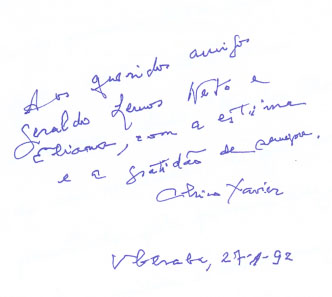 Aos queridos amigos
Geraldo Lemos Neto e
Eliana, com a estima
e a gratidão de sempre.
Chico Xavier
Uberaba, 27-1-92